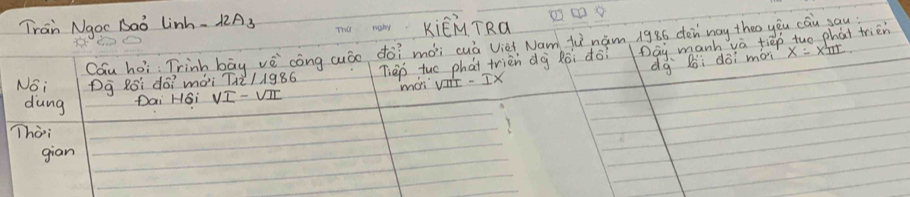 Trần Ngọc Bảo Linh - 12A3
Thứ ngày
KIỂM TRA
Câu hỏi: Trình bày về công cuộc đổi mới của Việt Nam từ năm 1986 đến nay theo yêu cầu sau:
Nội dung
Đg lối đổi mới T12/1986
Đại Hội VI - VII
Tiếp tục phát triển đg lối đổi
mới VIII - IX
Đẩy mạnh và tiếp tục phát triển
đg lối đổi mới X - XIII
Thời
gian